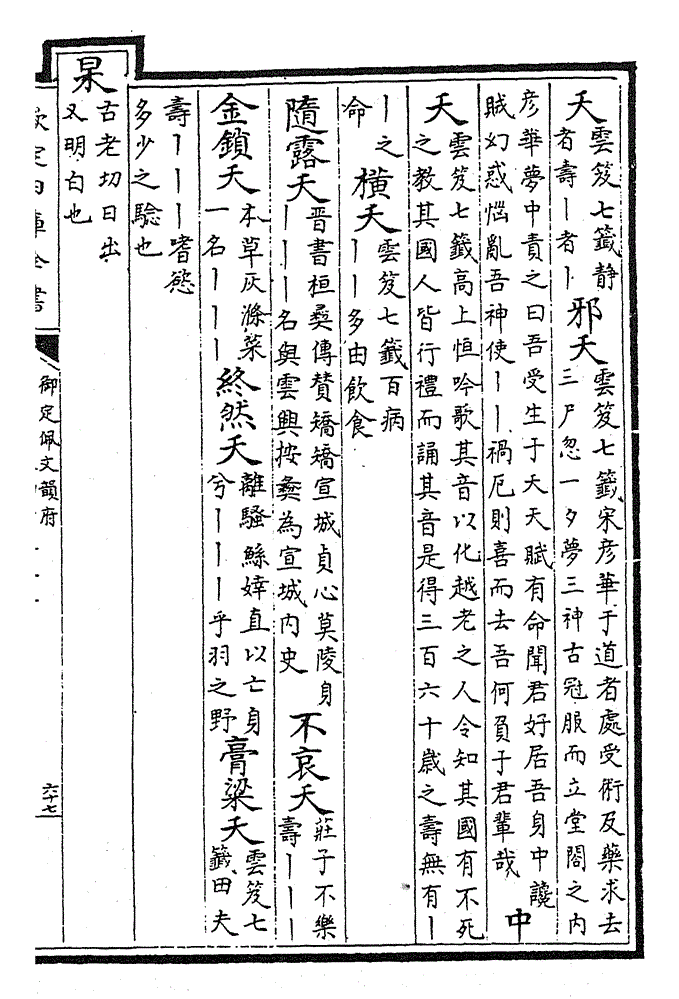 夭雲笈七籤静
者壽丨者丨
邪夭雲笈七籤宋彦華于道者處受術及藥求去
三尸忽一夕夢三神古冠服而立堂閤之内
彦華夢中責之曰吾受生于天天賦有命聞君好居吾身中讒
賊幻惑惱亂吾神使丨丨禍厄則喜而去吾何負于君輩哉
中
夭雲笈七籤高上恒吟歌其音以化越老之人令知其國有不死
之教其國人皆行禮而誦其音是得三百六十歲之壽無有丨
丨之
命
橫夭雲笈七籤百病
丨丨多由飲食
隨露夭晉書桓彝傳贊矯矯宣城貞心莫陵身
丨丨丨名與雲興按彝為宣城内史
不哀夭莊子不樂
壽丨丨丨
金鎖夭本草灰滌菜
一名丨丨丨
終然夭離騷鯀婞直以亡身
兮丨丨丨乎羽之野
膏梁夭雲笈七
籤田夫
壽丨丨丨嗜慾
多少之驗也
杲古老切日出
又明白也
欽定四庫全書
御定佩文韻府
六十七